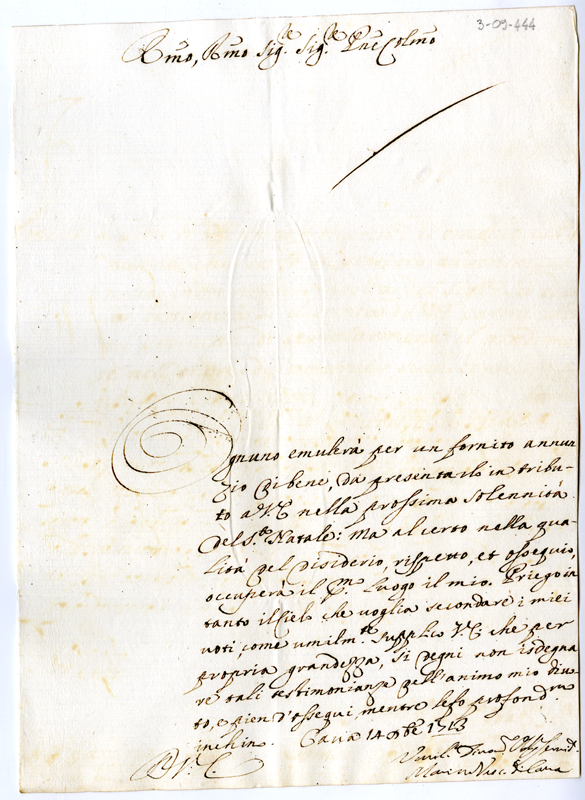 3-09-444
Rmo, Rmo Sig.re Sig.re Pne Colmo
Ognuno emulerà per un fornito annun
zio di beni, da presentarlo in tribu-
to a V.E. nella prossima solennità
del S.to Natale: Ma al certo nella qua
lità del disiderio, rispetto, et ossequio,
occuperà il p.mo luogo il mio. Priego in
tanto il Cielo che voglia secondare i miei
voti come umilm.te supplico V.E. che per
propria grandezza, si degni non isdegna
re tali testimonianze dell'animo mio divo-
to, e pien d'ossequi, mentre le fo profond.ma
inchin. Cava 14 Xbre 1713
D. V. E.
Marin Vesc. de la Cava